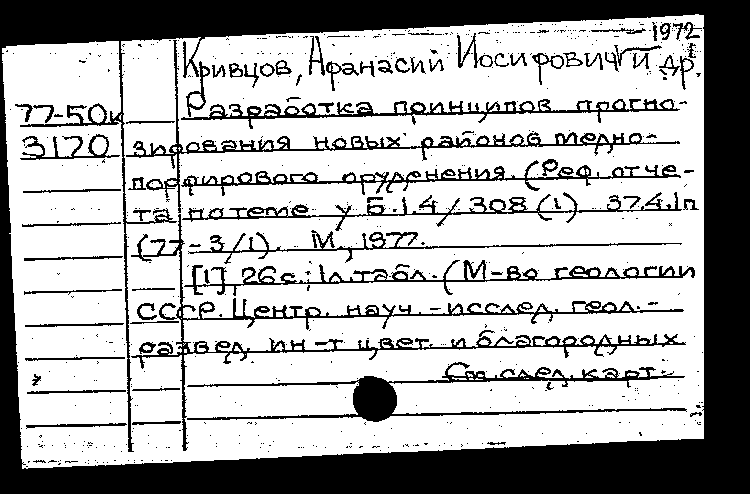 1972
Кривцов, Афанасий Иосифович и др.
77-50к Разработка принципов прогно-
3170 зирования новых районов медно-
порфирового оруденения. (Реф. отче-
та по теме у Б.1.4/308 (1). 374.1п
(77-3/1). М., 1977.
[1], 26с.; 1л.табл. (М-во геологии
СССР. Центр. науч.-исслед. геол.-
развед. ин-т цвет. и благородных
См. след. карт.